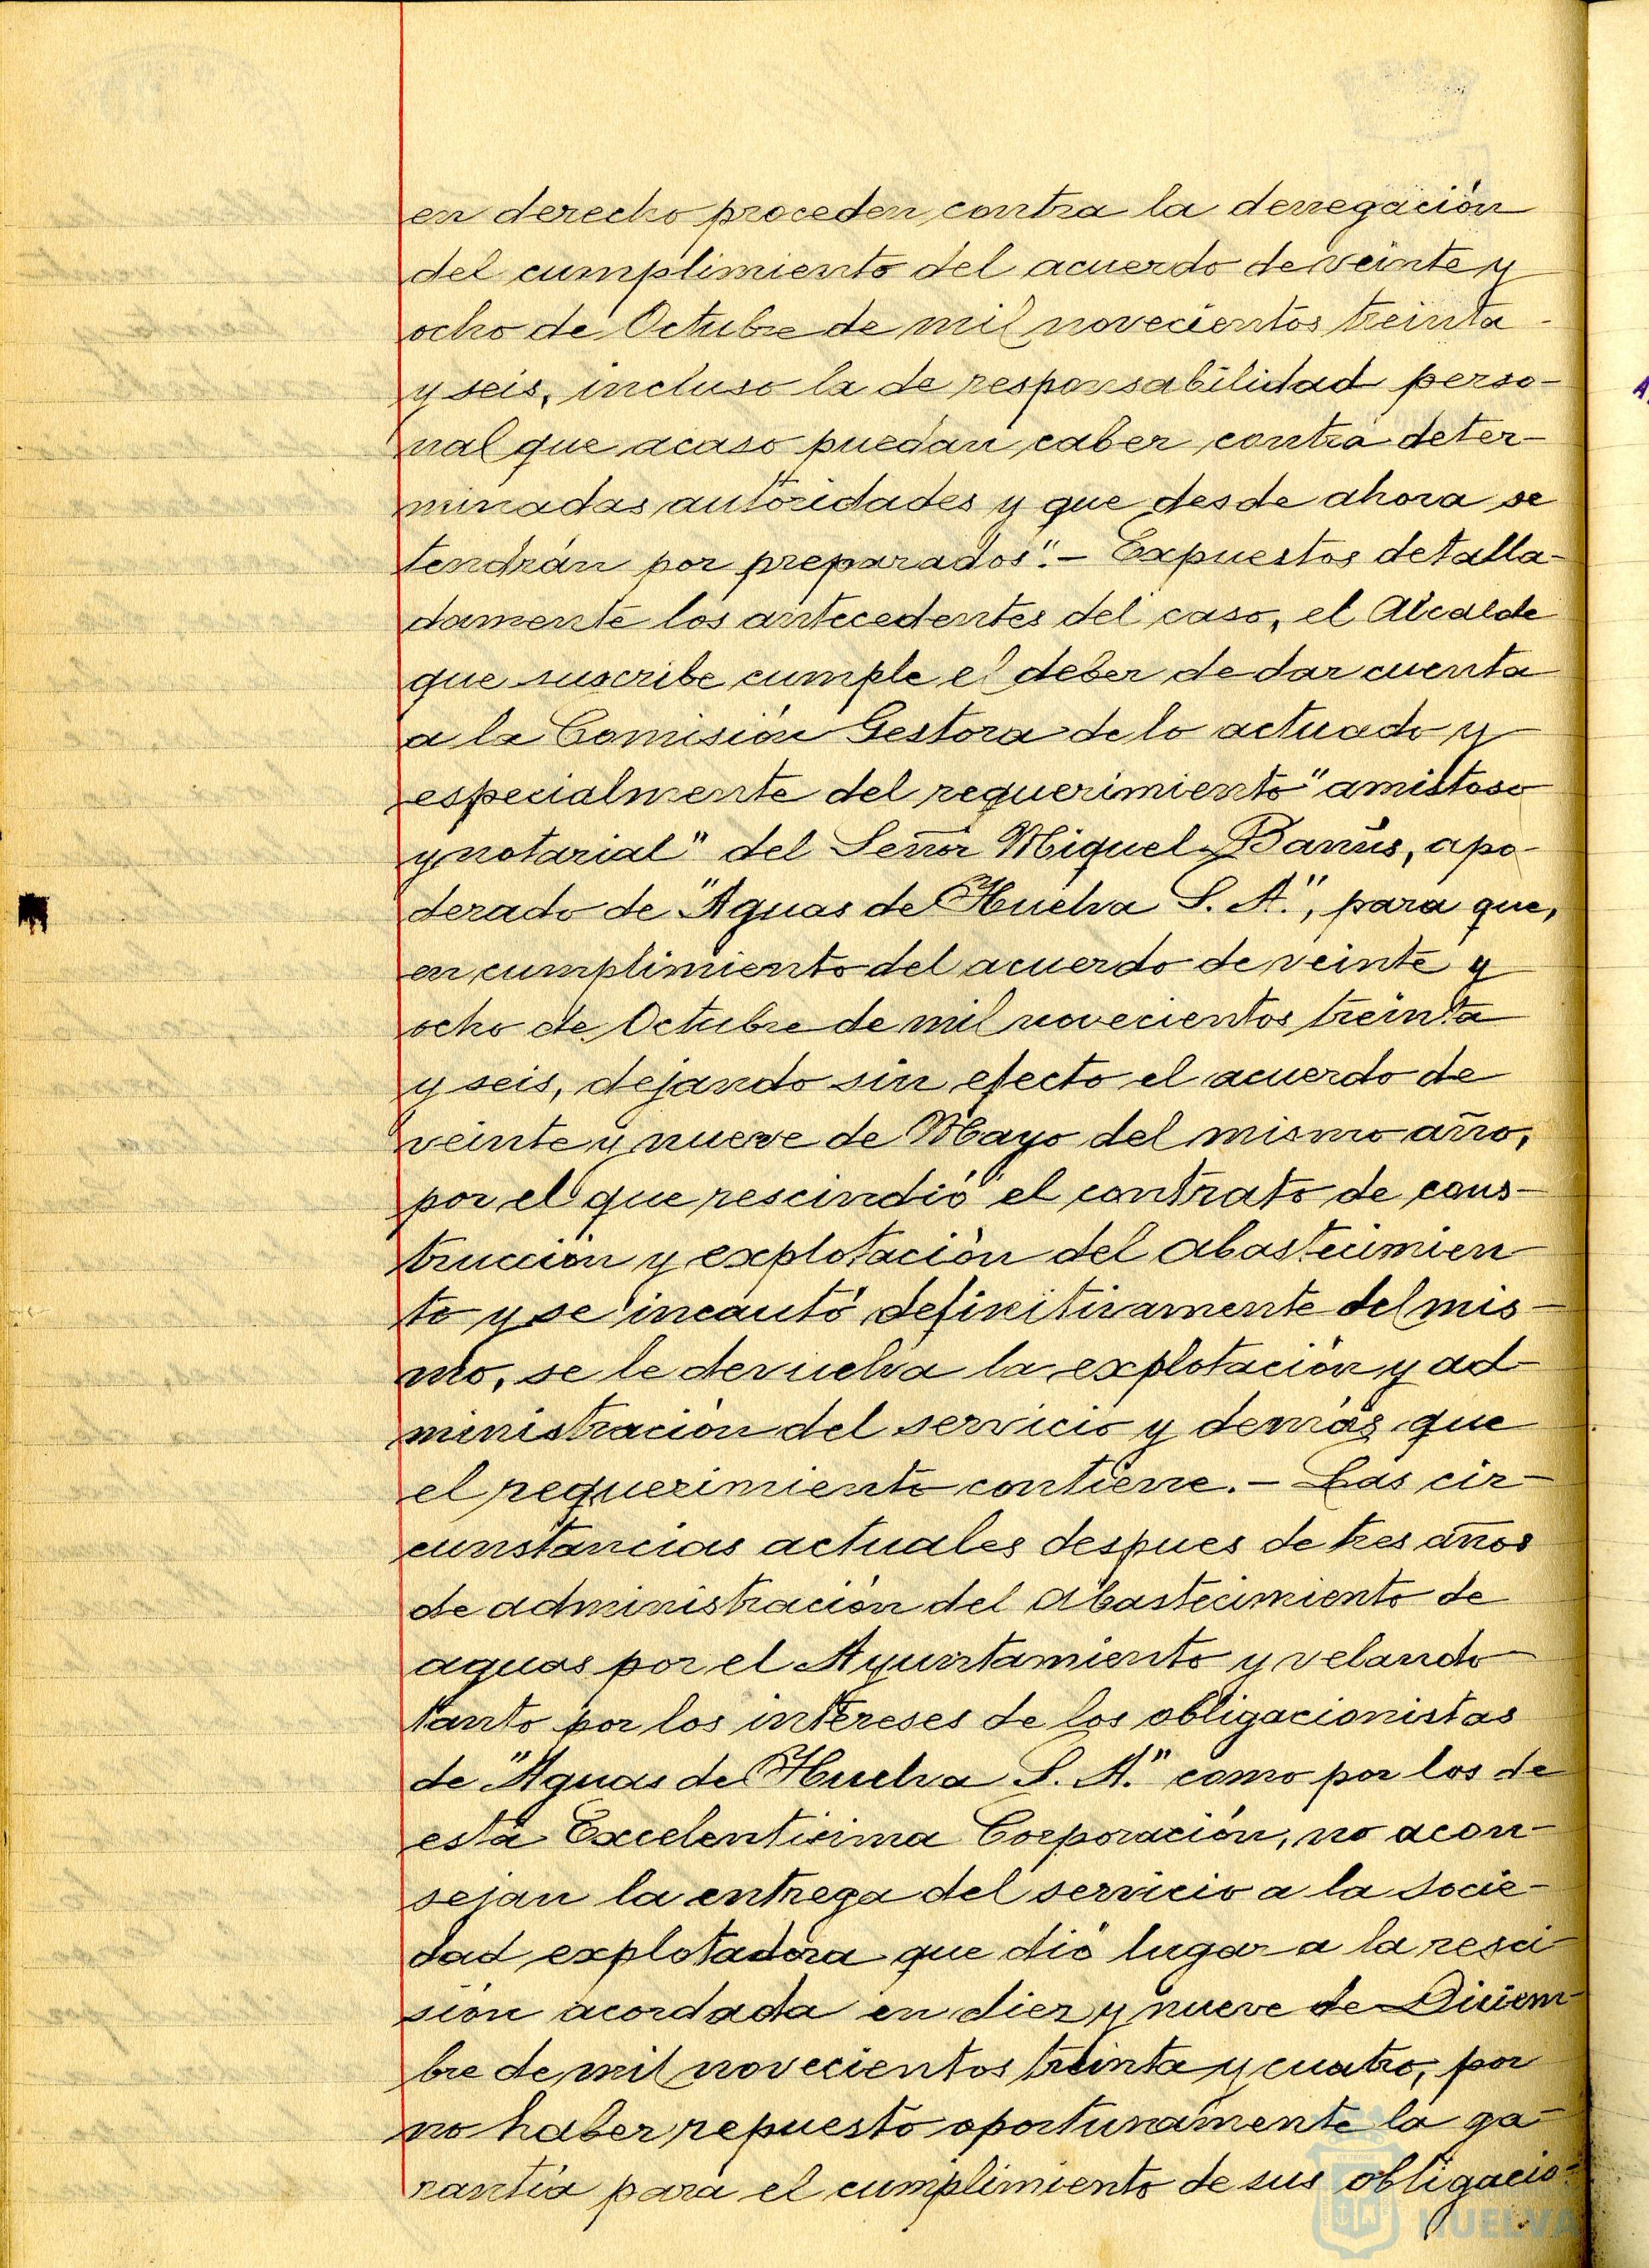 en derecho proceden, contra la denegación
del cumplimiento del acuerdo de veinte y
ocho de Octubre de mil novecientos treinta
y seis, incluso la de responsabilidad perso-
nal que acaso puedan caber contra deter-
minadas autoridades y que desde ahora se
tendrán por preparados".- Expuestos detalla-
damente los antecedentes del caso, el Alcalde
que suscribe cumple el deber de dar cuenta
a la Comisión Gestora de lo actuado y
especialmente del requerimiento "amistoso
y notarial" del Señor Miguel Banús, apo-
derado de "Aguas de Huelva S. A.", para que,
en cumplimiento del acuerdo de veinte y
ocho de Octubre de mil novecientos treinta
y seis, dejando sin efecto el acuerdo de
veinte y nueve de Mayo del mismo año,
por el que rescindió el contrato de cons-
trucción y explotación del abastecimien
to y se incautó definitivamente del mis-
mo, se le devuelva la explotación y ad-
ministración del servicio y demás que
el requerimiento contiene.- Las cir-
cunstancias actuales despues de tres años
de administración del Abastecimiento de
aguas por el Ayuntamiento y velando
tanto por los intereses de los obligacionistas
de "Aguas de Huelva S. A." como por los de
esta Excelentisima Corporación, no acon-
sejan la entrega del servicio a la Socie-
dad explotadora que dió lugar a la resci-
sión acordada en diez y nueve de Diciem-
bre de mil novecientos treinta y cuatro, por
no haber repuesto oportunamente la ga-
rantía para el cumplimiento de sus obligacio-
HUELVA